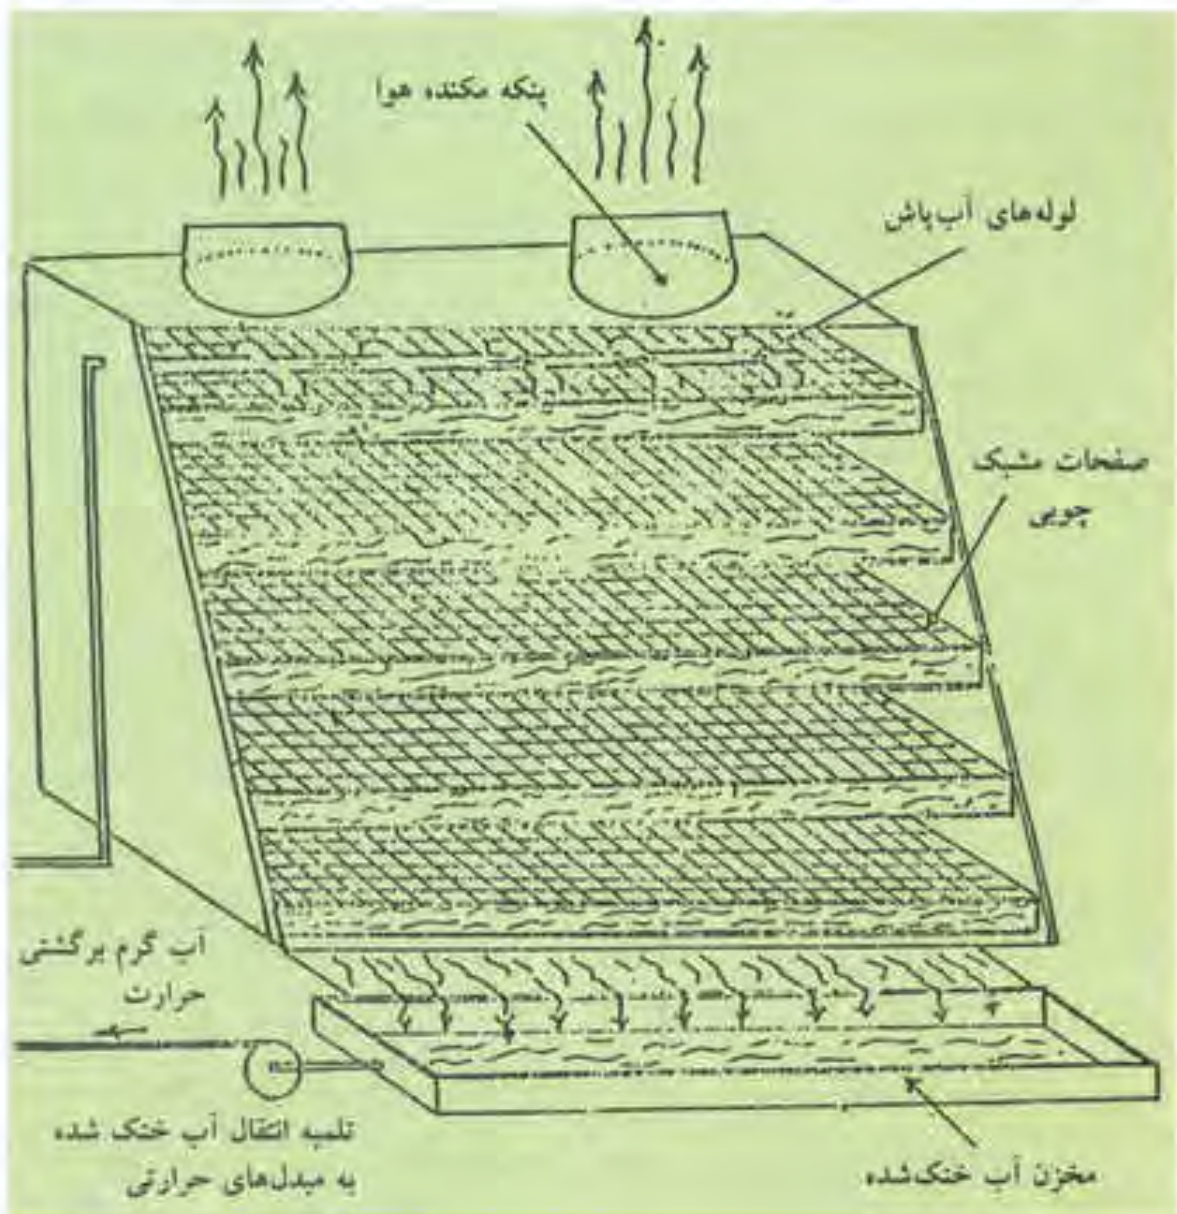 پنکه مکنده هوا
لوله‌های آب‌پاش
صفحات مشبک
چوبی
آب گرم برگشتی
حرارت
تلمبه انتقال آب خنک شده
به مبدل‌های حرارتی
مخزن آب خنک‌شده